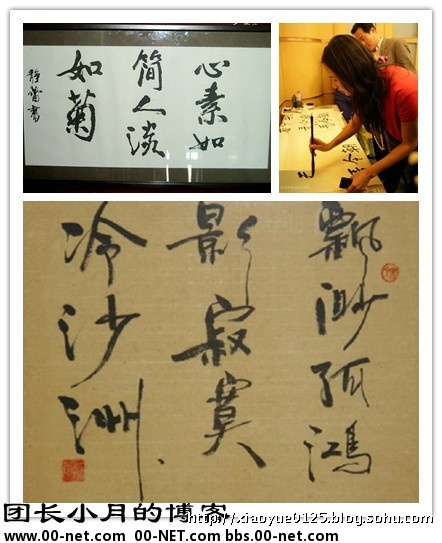 心素如
简人淡
如菊
静蕾書
飄渺孤鴻
影寂寞
冷沙洲
团长小月的博客
http://xiaoyue0125.blog.sohu.com
www.00-net.com 00-NET.com bbs.00-net.com